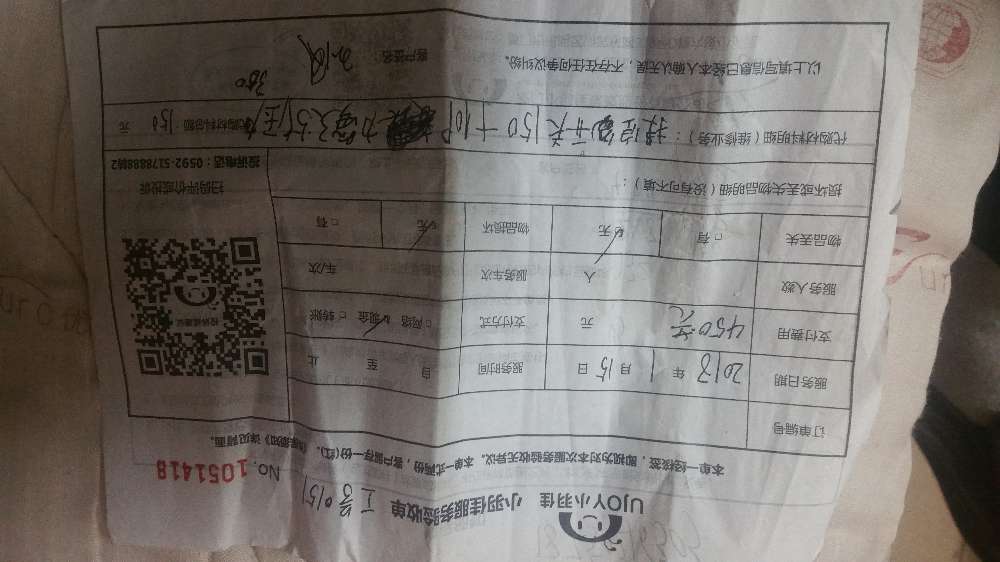 UJOY小羽佳 小羽佳服务验收单 工号0151
NO. 1051418
本单一经接签，即视为对本次服务验收无异议。本单一式两份，客户留存一份(红)。《服务须知》详见背面。
订单编号
服务日期 2018 年 1 月 15 日 服务时间 自 至 止
支付费用 450元 元 支付方式 □ 网络 ☑ 现金 □ 转账
服务人数 人 服务车次 车/次
物品丢失 □ 有 ☑ 无 物品损坏 ☑ 无 □ 有
损坏或丢失物品明细（没有可不填）：
扫码评价或投诉
投诉电话：0592-5178888转2
代购材料明细（维修业务）： 开关150 代购材料总额 150 元
350
以上填写信息已经本人确认无误，不存在任何争议纠纷。 客户签名：